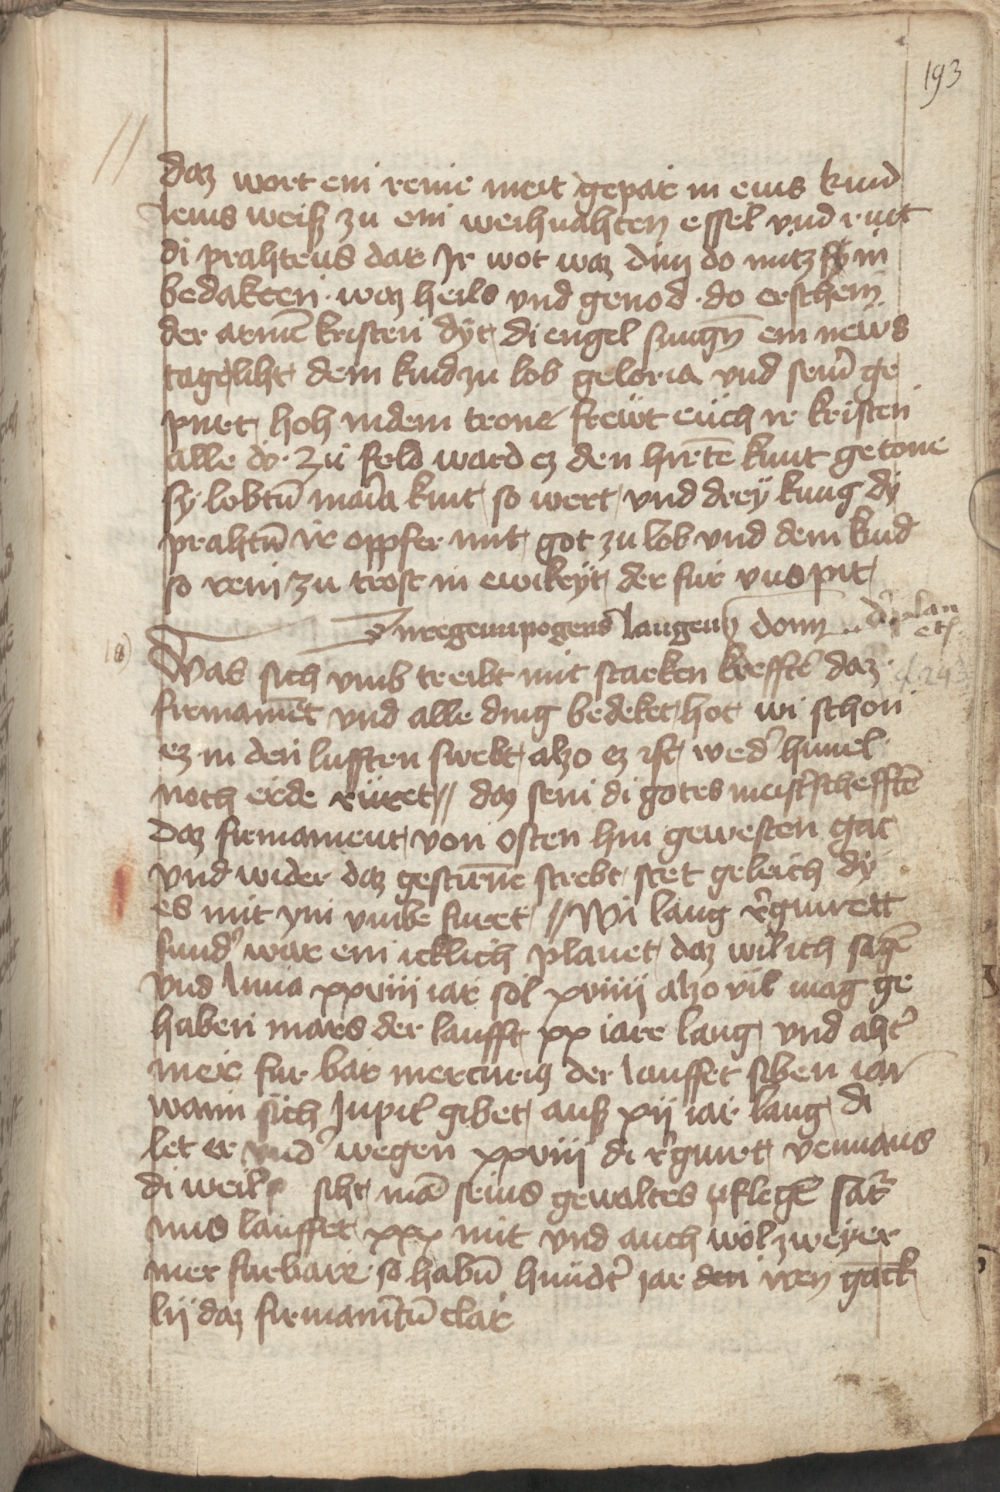 193
daz wort ein reine meit gepar in eins kind
leins weiß zu ein weihnahten essel vnd rint
di prahtens dar Ir wot waz dün do nütz in
bedakten · waz heils vnd genod · do erschein
der armē kristen dÿt di engel sungn̄ ein news
tageliht dem kind zu lob geloria vnd seinr̄ ge
purt hoh in dem trone frewt euch ir kristen
alle do · zu feld ward ez den hirtē kunt getone
sy lobtn̄ maria kint so wert vnd dreÿ kung dÿ
prahtn̄ ir oppfer mit got zu lob vnd dem kind
so rein zu trost in ewikeyt der für vns pit
In regenpogens langen don
planet
Was sich vmb treibt mit starken kreffte daz
firmamēt vnd alle ding bedeket hot wi schon
ez in den lufften swebt alzo ez ist wedr himel
noch erde rüret // daz sein di gotes meistrschefftē
daz firmament von osten hin gewesten gat
vnd wider daz gestirne strebt stet geleich dÿ
es mit ym vmbe furet // Wi lang
sundr war ein icklich planet daz wil ich sagē
vnd luna xxviiii iar sol xviiii alzo vil mag ge
haben mars der laufft xx iare lang vnd ahtr
mer fur bar mercurig der lauffet siben iar
wann sich Jupitr gibet auß xij iar lang di
let er vndr wegen xxviii di venuaus
di weil siht mā seins gewaltes pflegē satr
nus lauffet xxx mit vnd auch wol zweyer
mer furbare · so habn̄ hundtr iar den iren gack
lij daz firmamētū clar